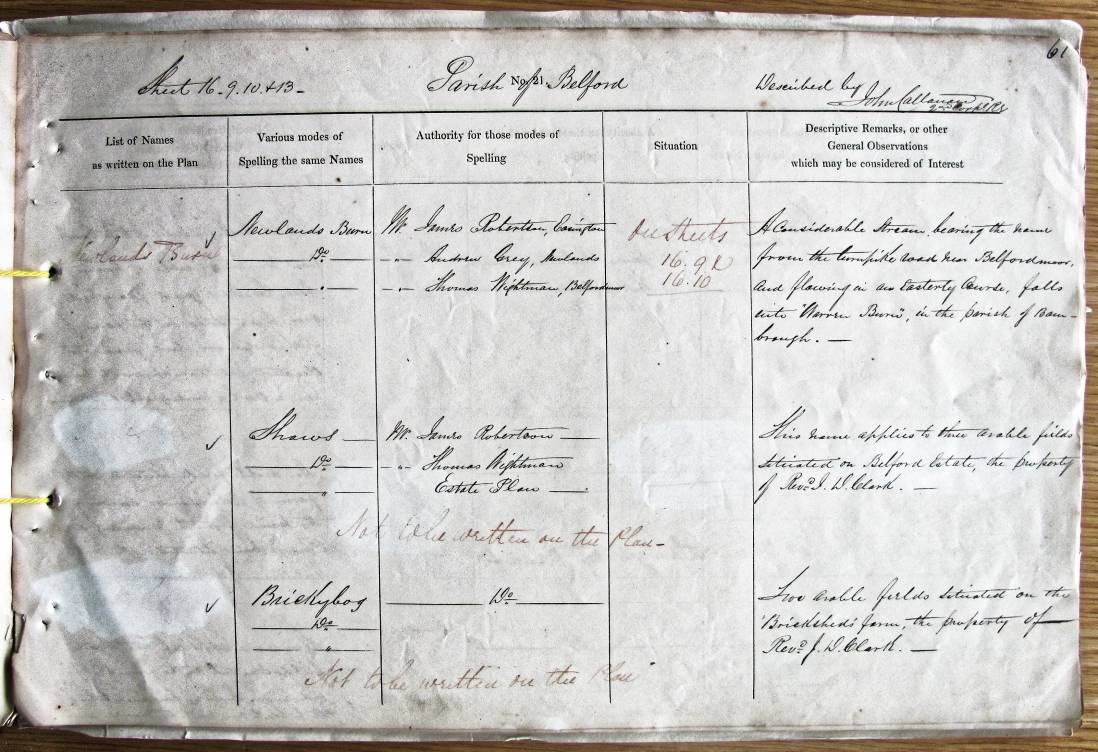 61
Sheet 16_9.10.&13_
Parish of Belford
No. 21
Described by John Callanan
2nd Corpl RE
List of Names
as written on the Plan
Various modes of
Spelling the same Names
Authority for those modes of
Spelling
Situation
Descriptive Remarks, or other
General Observations
which may be considered of Interest
Newlands Burn
Newlands Burn
Do
"
Mr. James Robertson, Easington
- " - Andrew Grey, Newlands
- " - Thomas Wightman, Belfordmoor
On Sheets
16.9
16.10
A Considerable Stream, bearing the name
from the turnpike road near Belfordmoor,
and flowing in an Easterly Course, falls
into "Warren Burn", in the Parish of Bam-
brough. —
Shaws —
Do
"
Mr. James Robertson —
- " - Thomas Wightman
Estate Plan —
This name applies to three arable fields
situated on Belford Estate, the property
of Revd. J. D. Clark. —
Not to be written on the Plan-
Brickybog
Do
"
Do
Two arable fields situated on the
"Bricksheds" farm, the property of
Revd. J. D. Clark. —
Not to be written on the Plan